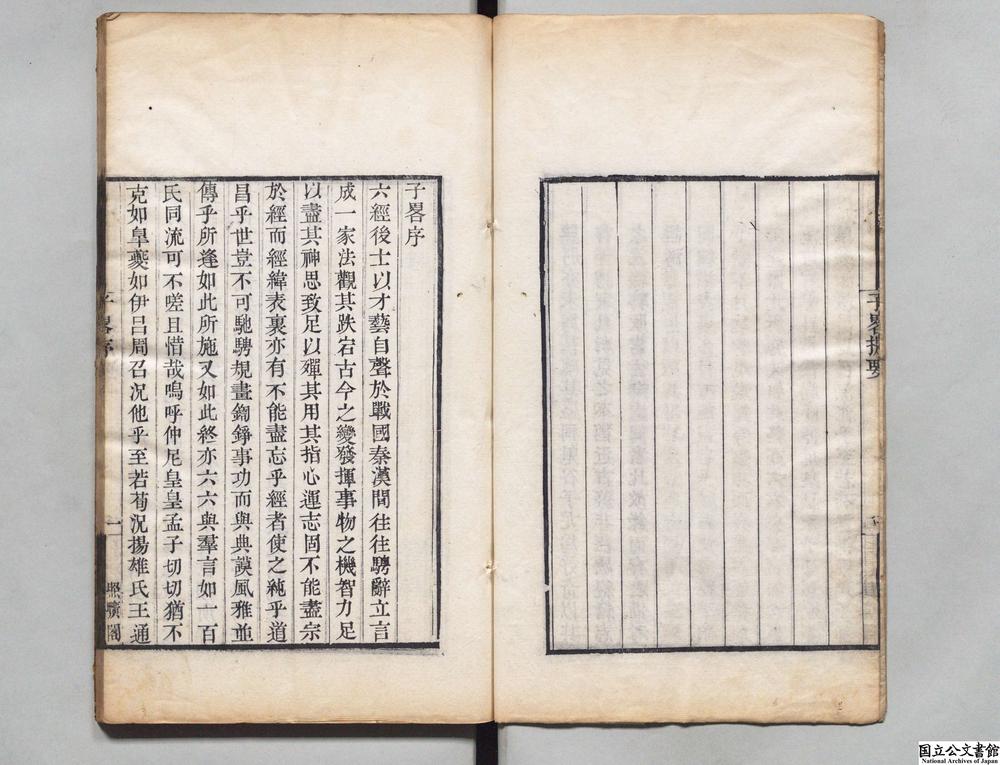 子畧提要
子畧序
六經後士以才藝自聲於戰國秦漢間往往騁辭立言
成一家法觀其跌宕古今之變發揮事物之機智力足
以盡其神思致足以殫其用其指心運志固不能盡宗
於經而經緯表裏亦有不能盡忘乎經者使之純乎道
昌乎世豈不可馳騁規畫鏘錚事功而與典謨風雅並
傳乎所逢如此所施又如此終亦六六與羣言如一百
氏同流可不嗟且惜哉嗚呼仲尼皇皇孟子切切猶不
克如皐夔如伊呂周召況他乎至若荀況揚雄氏王通
子畧序
一
照曠閣
国立公文書館
National Archives of Japan